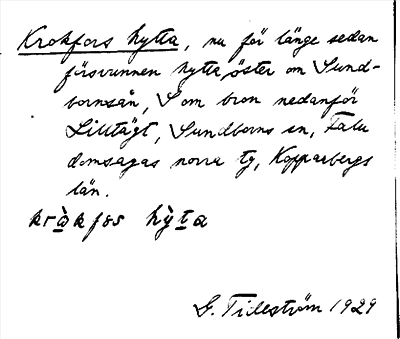 Krokfors hytta, nu för länge sedan
försvunnen hytta, öster om Sund-
bornsån, S om bron nedanför
Lilltägt, Sundborns sn, Falu
domsagas norra tg, Kopparbergs
län.
krɑ̀kfɒs hỳta
G. Tilleström 1929